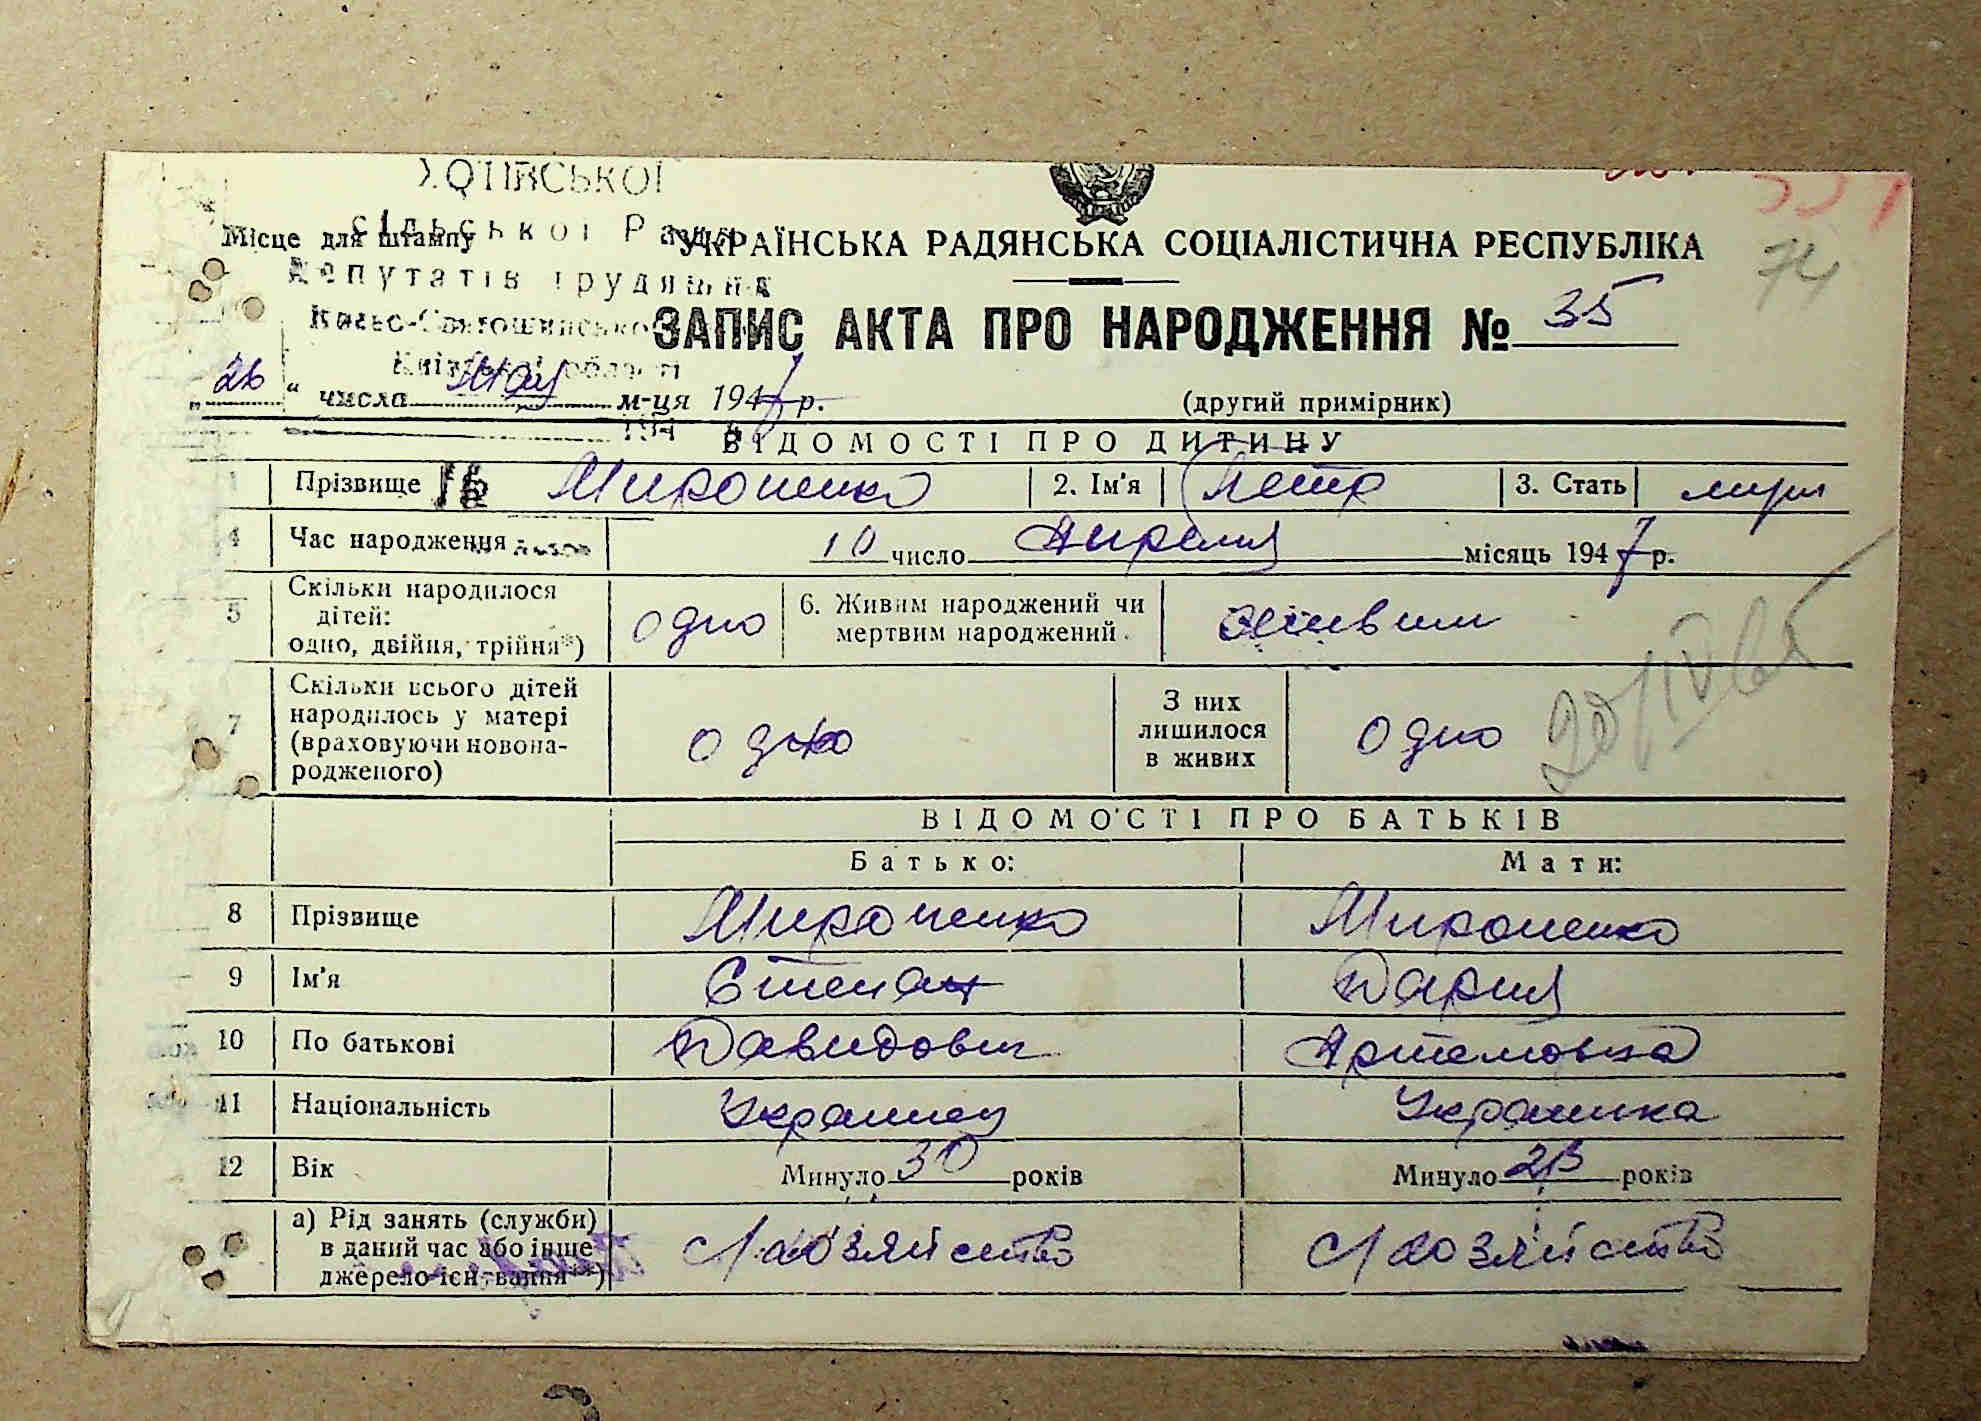 ХОТІВСЬКОЇ
сільської Ради
Місце для штампу
УКРАЇНСЬКА РАДЯНСЬКА СОЦІАЛІСТИЧНА РЕСПУБЛІКА
74
депутатів трудящих
Києво-Святошинського
ЗАПИС АКТА ПРО НАРОДЖЕННЯ № 35
Київської області
„26“ числа мая м-ця 1947 р.
(другий примірник)
194
ВІДОМОСТІ ПРО ДИТИНУ
1 Прізвище Мироненко 2. Ім'я Петр 3. Стать муж
4 Час народження 10 число Апреля місяць 1947 р.
5 Скільки народилося дітей: одно, двійня, трійня*) одно 6. Живим народжений чи мертвим народжений живим
7 Скільки всього дітей народилось у матері (враховуючи новонародженого) одно З них лишилося в живих одно
ВІДОМОСТІ ПРО БАТЬКІВ
Батько: Мати:
8 Прізвище Мироненко Мироненко
9 Ім'я Степан Дария
10 По батькові Давидович Артемовна
11 Національність Украинец Украинка
12 Вік Минуло 30 років Минуло 23 років
а) Рід занять (служби) в даний час або інше джерело існування**) с/хозяйство с/хозяйство